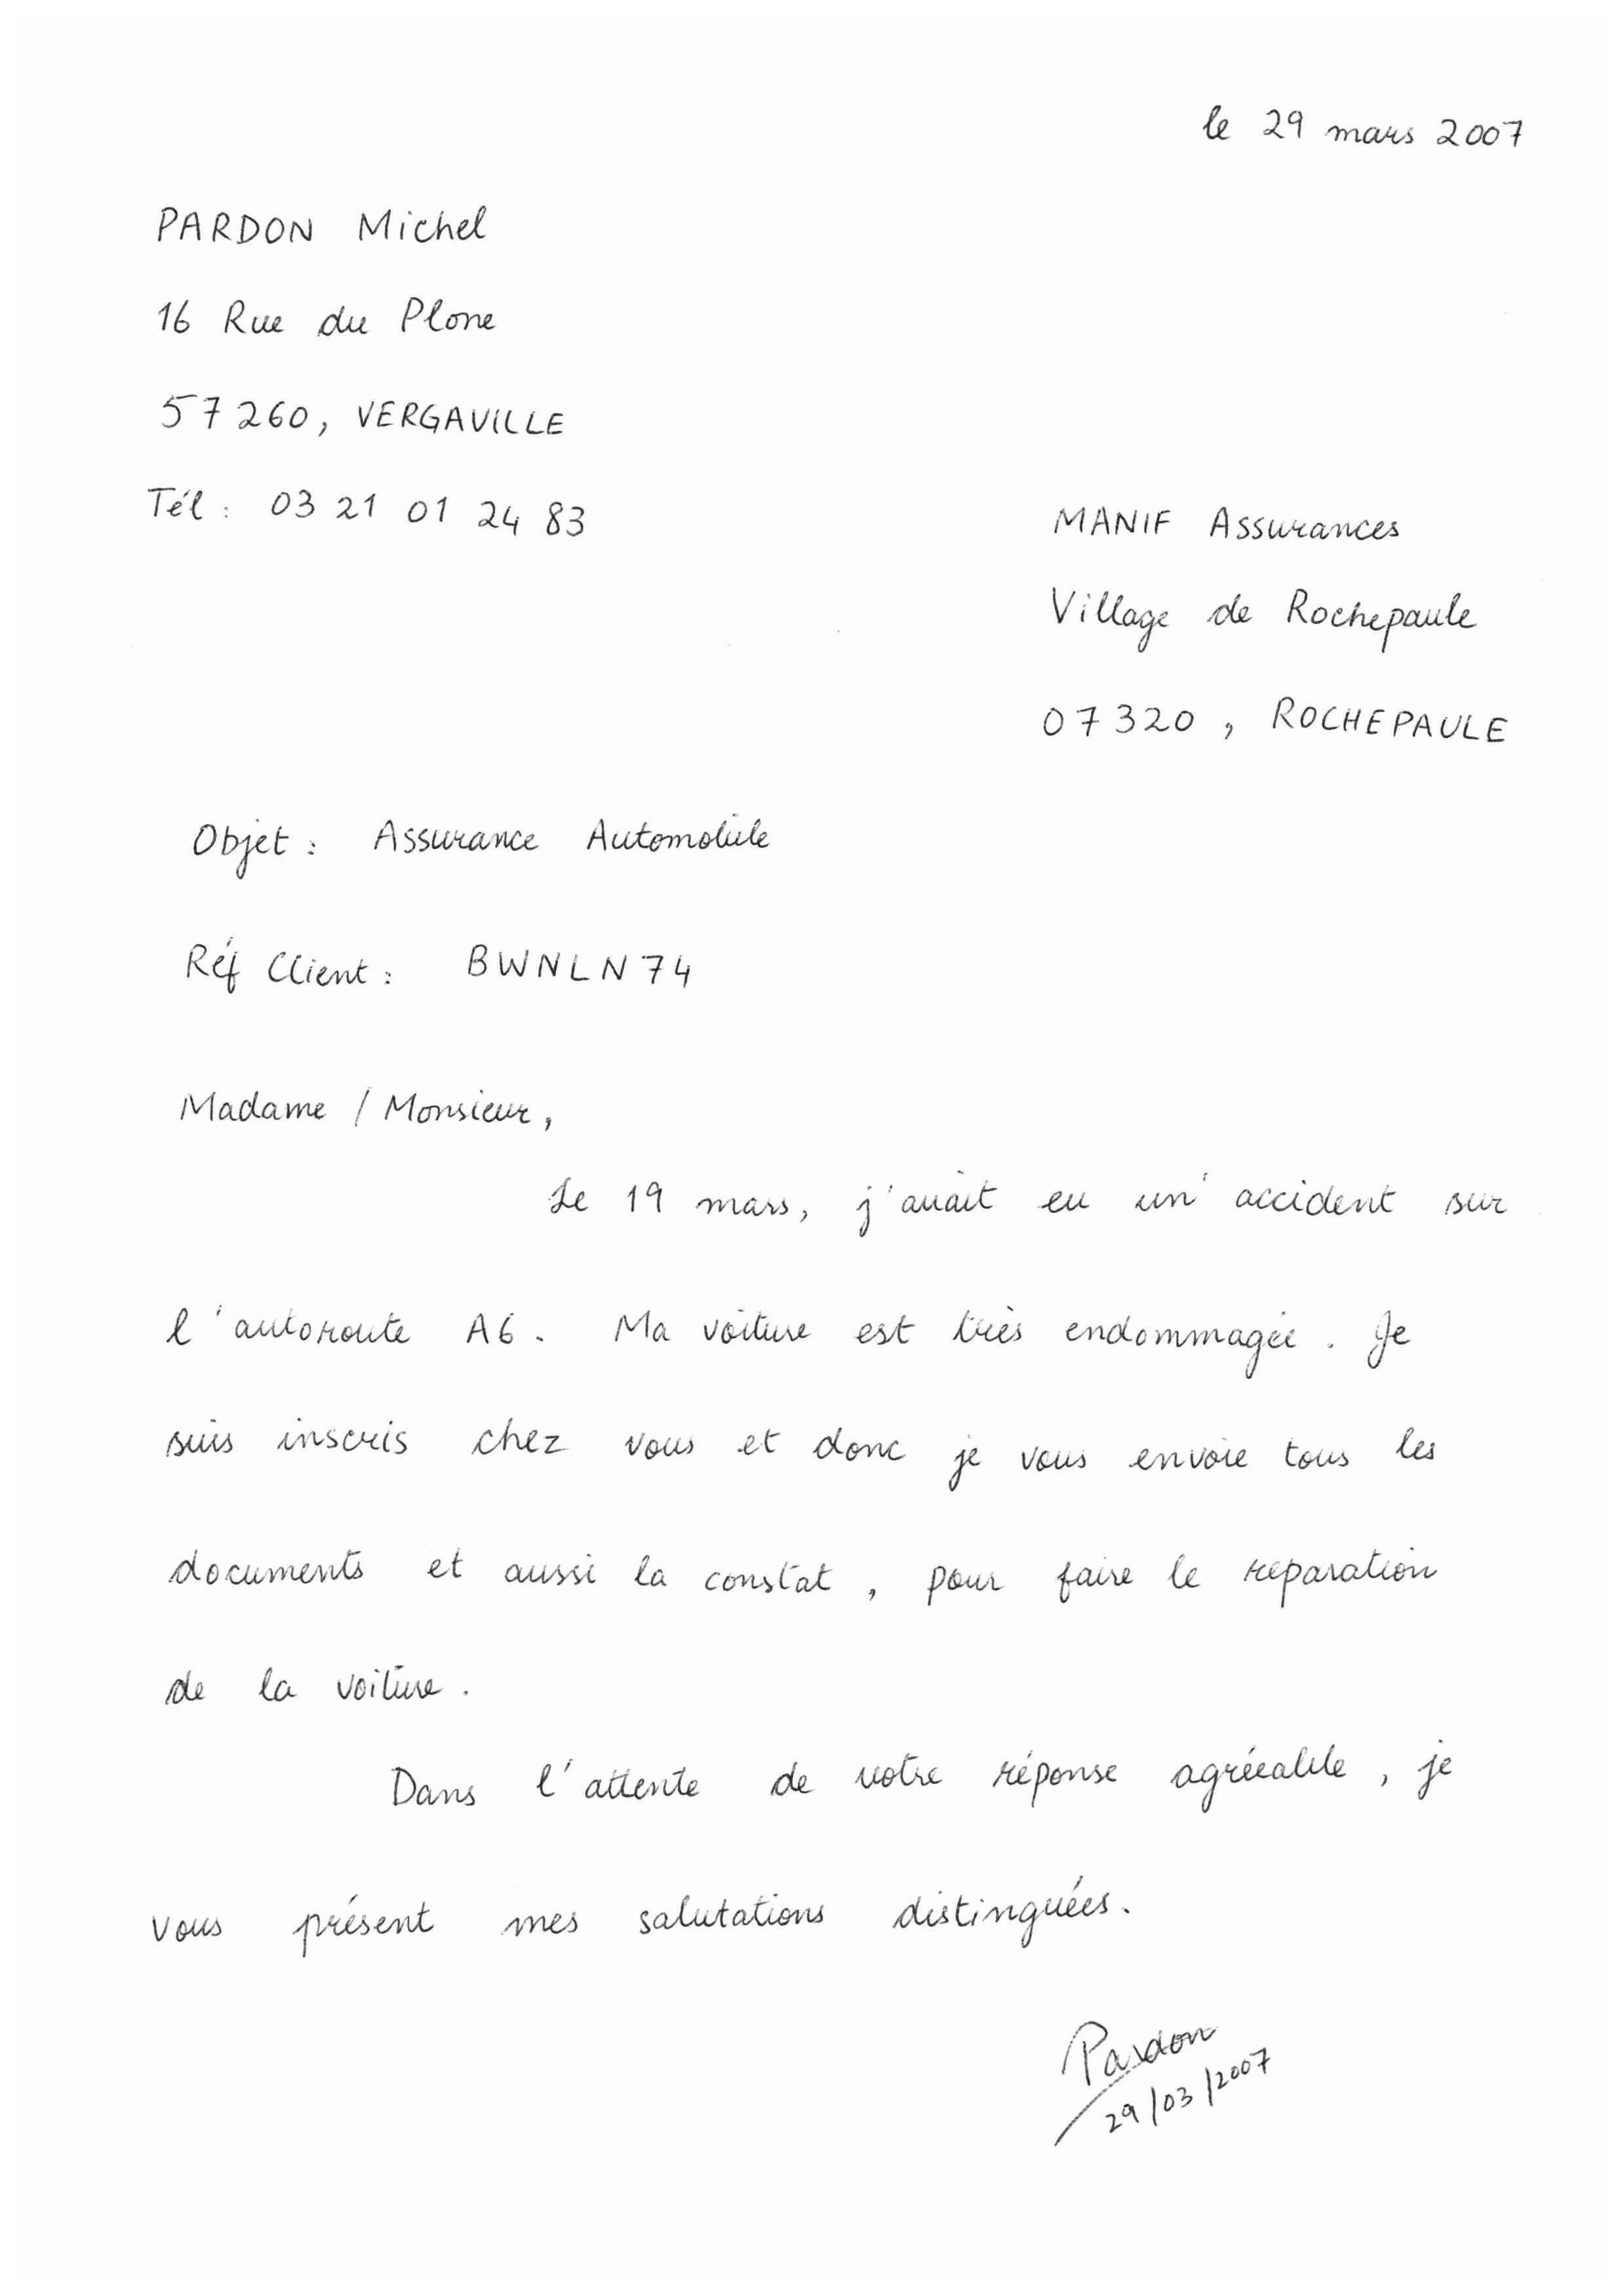 le 29 mars 2007
PARDON Michel
16 Rue du Plone
57260, VERGAVILLE
Tél : 03 21 01 24 83
MANIF Assurances
Village de Rochepaule
07320, ROCHEPAULE
Objet : Assurance Automobile
Réf Client : BWNLN74
Madame / Monsieur,
Le 19 mars, j'avait eu un' accident sur
l'autoroute A6. Ma voiture est très endommagée. Je
suis inscris chez vous et donc je vous envoie tous les
documents et aussi la constat, pour faire le reparation
de la voiture.
Dans l'attente de votre réponse agréeable, je
vous présent mes salutations distinguées.
Pardon
29/03/2007